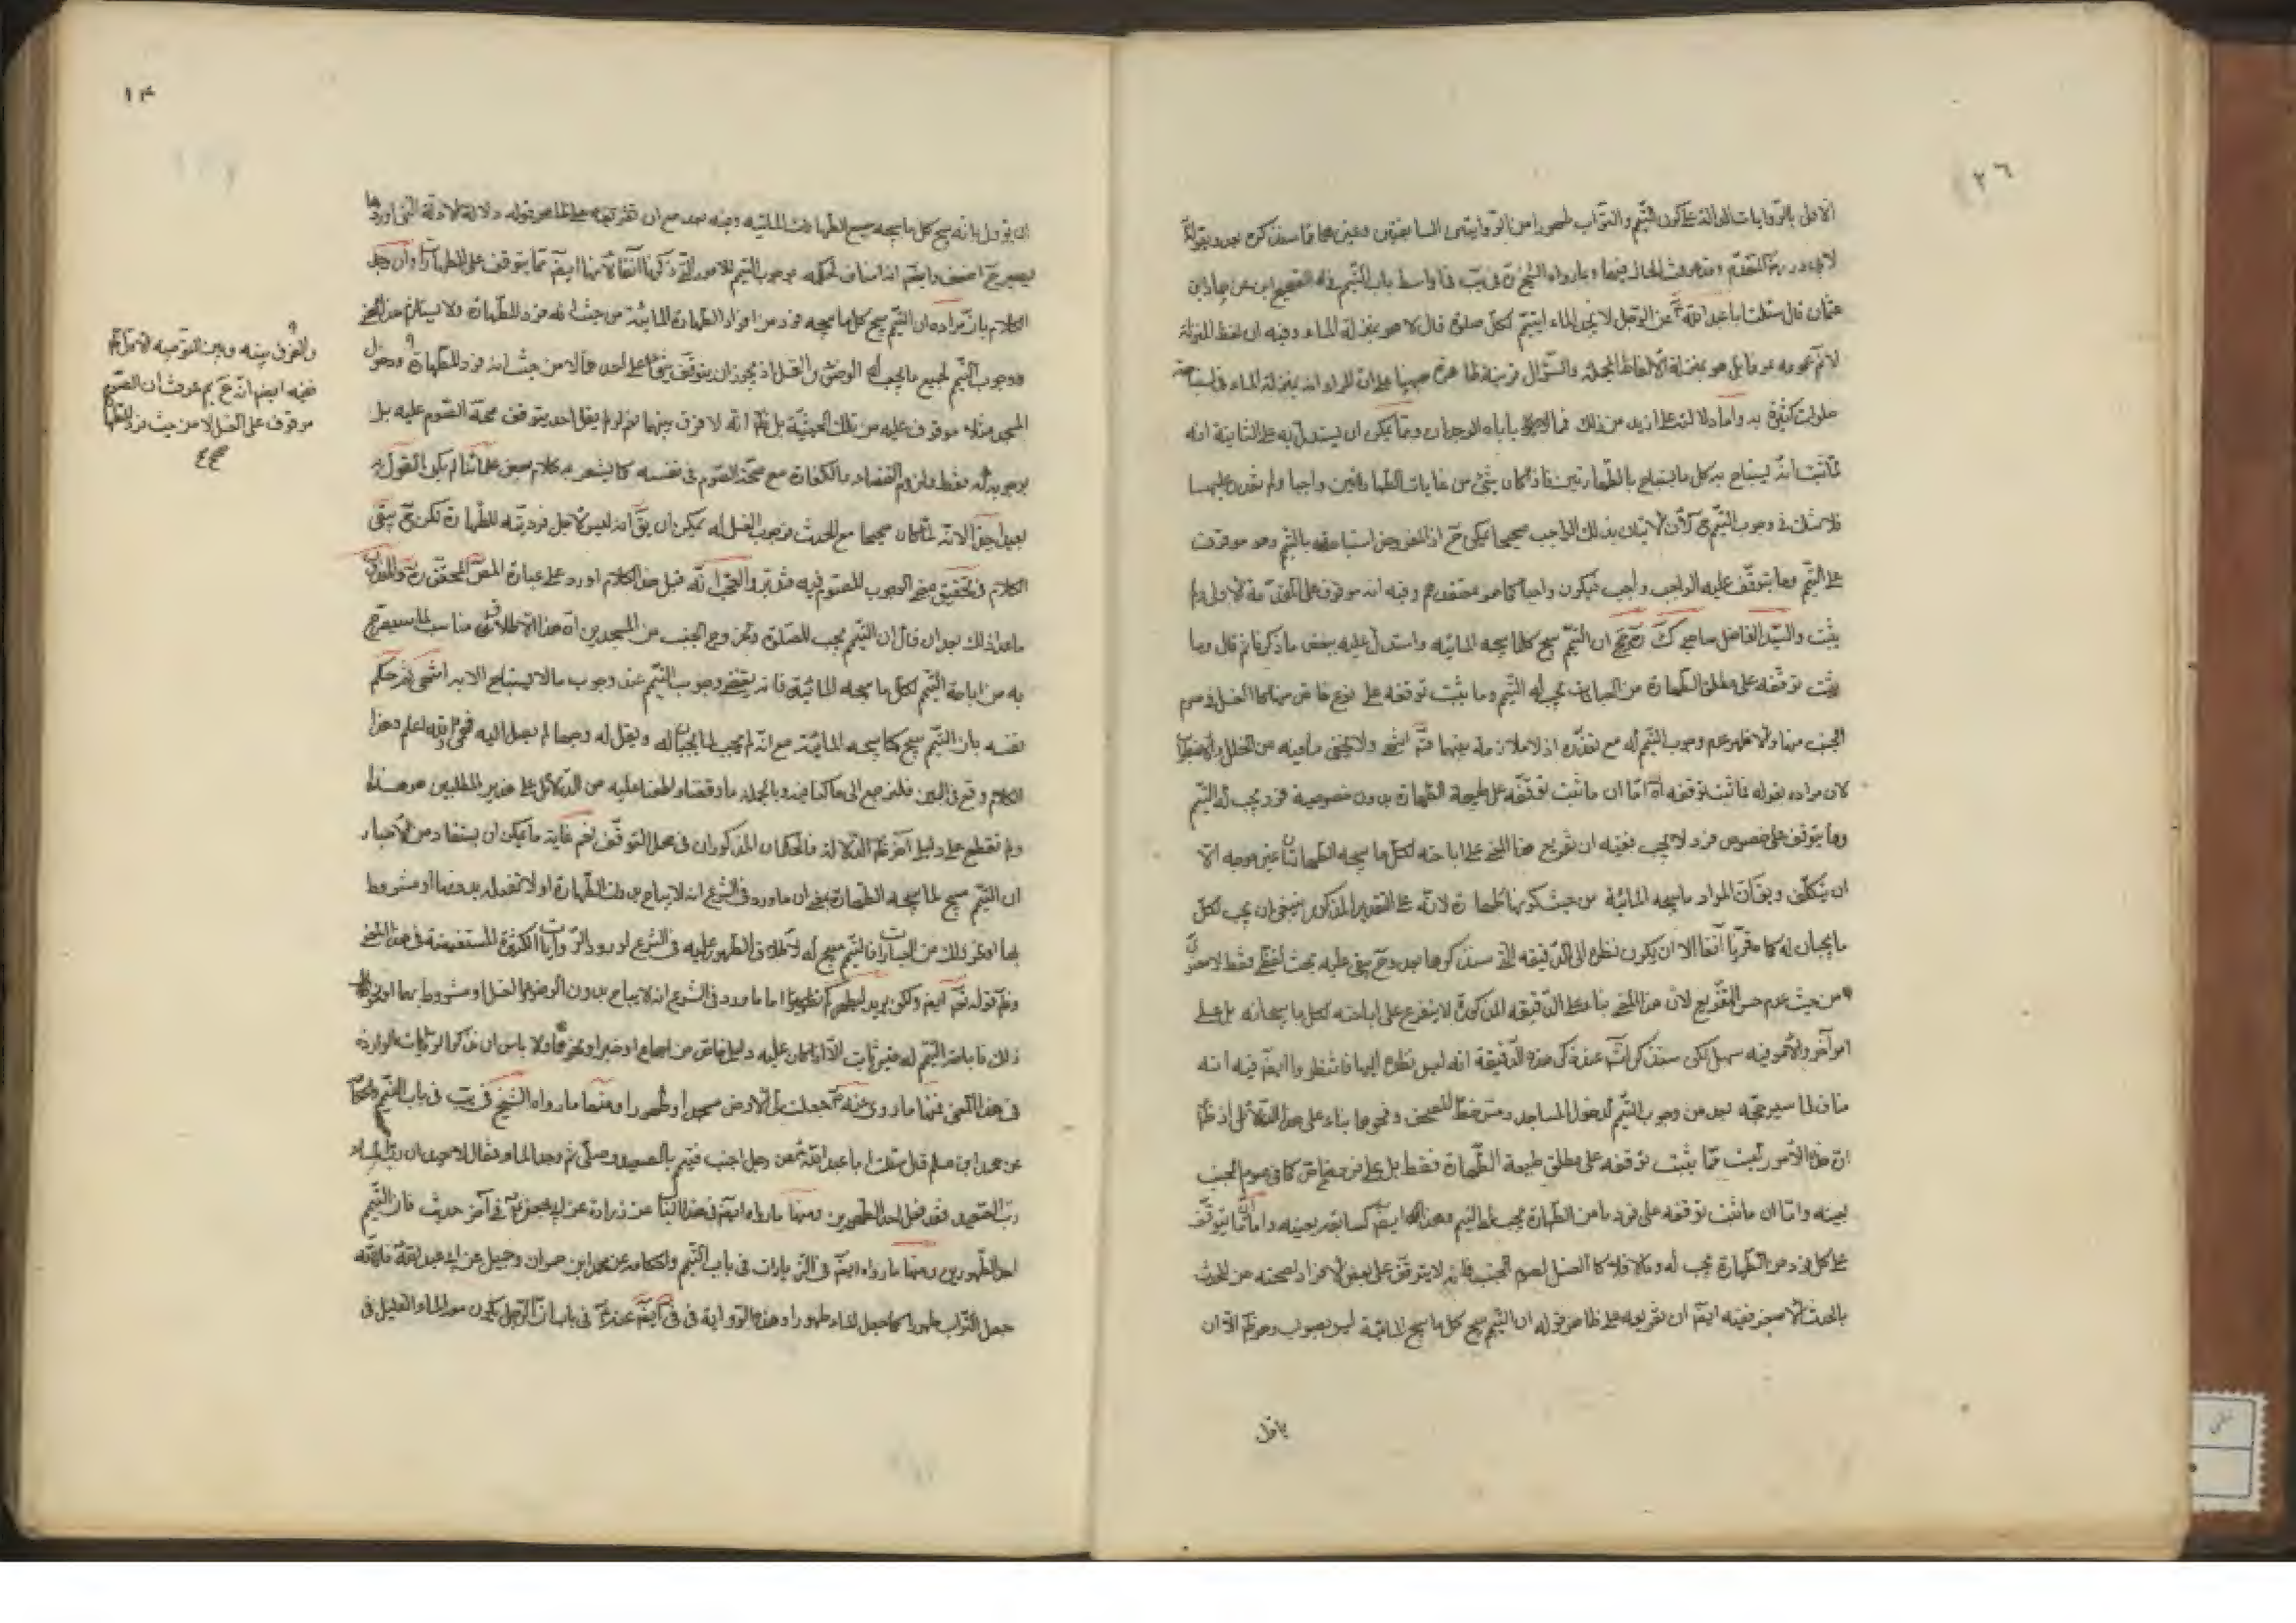 ٢٦
الاول بالروايات الدالة على كون التيمم والتراب طهورا من الروايتين السابقتين وغيرهما مما سنذكره بعد وبقوله
لابي ذر المتقدم وقد عرفت الحال فيهما وبما رواه الشيخ في يب في اواسط باب التيمم في الصحيح عن حماد ابن
عثمان قال سئلت ابا عبد الله ع عن الرجل لا يجد الماء ايتيمم لكل صلوة قال لا هو بمنزلة الماء وفيه ان لفظ المنزلة
لا عموم له بل هو بمنزلة الالفاظ المجملة والسؤال قرينة ظاهرة ههنا على ان المراد انه بمنزلة الماء في استباحة
صلوات كثيرة به واما دلالته على ازيد من ذلك فما ياباه الوجدان ومما يمكن ان يستدل به على الثانية انه
لما ثبت انه يستباح به كل ما يستباح بالطهارتين فاذا كان شئ من غايات الطهارتين واجبا ولم نقدر عليهما
فلا شك في وجوب التيمم ح لان الاتيان بذلك الواجب صحيحا يمكن ح اذ المفروض استباحته بالتيمم وهو موقوف
على التيمم وما يتوقف عليه الواجب واجب فيكون واجبا كما هو معتقدهم وفيه انه موقوف على المقدمة الاولى ولم
يثبت والسيد الفاضل صاحب ك رجح ان التيمم يبيح كلما يبيحه المائيه واستدل عليه ببعض ما ذكرنا ثم قال وما
ثبت توقفه على مطلق الطهارة من العبادات يجب له التيمم وما يثبت توقفه على نوع خاص منها كالغسل في صوم
الجنب مثلا فالاظهر عدم وجوب التيمم له مع تعذره اذ لا ملازمة بينهما فت انتهى ولا يخفى ما فيه من الخلل والاضطراب
لان مراده بقوله فما ثبت توقفه اه اما ان ما ثبت توقفه على طبيعة الطهارة بدون خصوصية فرد يجب له التيمم
وما يتوقف على خصوص فرد لا يجب ففيه ان تفريع هذا المعنى على اباحته لكل ما يبيحه الطهارتان غير موجه الا
ان يتكلف ويق ان المراد ما يبيحه المائية من حيث كونها طهارة لانه على التقدير المذكور ينبغي ان يجب لكل
ما يجبان له كما قررنا آنفا الا ان يكون نظره الى الدقيقه التي سنذكرها بعد وح يبقى عليه بحث لفظي فقط لا معنوي
من حيث عدم حسن التفريع لان هذا المعنى بناء على الدقيقه المذكورة لا يتفرع على اباحته لكل ما يبيحانه بل على
امر آخر والامر فيه سهل لكن سنذكر انش عند ذكر هذه الدقيقة انه ليس نظره اليها فانتظر وايض فيه انه
مناف لما سيرجحه بعد من وجوب التيمم لدخول المساجد ومس خط المصحف ونحوها بناء على هذا الدلائل اذ ظ
ان هذه الامور ليست مما يثبت توقفه على مطلق طبيعة الطهارة فقط بل على فرد خاص كما في صوم الجنب
بعينه واما ان ما ثبت توقفه على فرد ما من الطهارة يجب له التيمم وهذا ايض كسابقه بعينه واما ان ما يتوقف
على كل فرد من الطهارة يجب له وما لا فلا كالغسل لصوم الجنب فانه لا يتوقف على بعض الافراد لصحته من المحدث
بالحدث الاصغر ففيه ايض ان تفريعه على ظاهر قوله ان التيمم يبيح كل ما يبيح المائية ليس بصواب وهو ظ الا ان
ياول
١٣
ان يؤول بانه يبيح كل ما يبيحه جميع الطهارات المائيه وفيه بعد مع ان تفريعه على ما هو قوله دلالة الادلة التي اوردها
يصير ح اضعف وايض انه مناف لحكمه بوجوب التيمم للامور التي ذكرنا آنفا لانها ايض مما يتوقف على الطهارات وان حمل
الكلام بان مراده ان التيمم يبيح كل ما يبيحه فرد من افراد الطهارة المائية من حيث انه فرد للطهارة ولا يستلزم هذا المعنى
وجوب التيمم لجميع ما يجب له الوضوء والغسل اذ يجوز ان يتوقف شئ على احدهما لا من حيث انه فرد للطهارة ودخول
المسجد مثلا موقوف عليه من تلك الحيثية بل ظ انه لا فرق بينهما نعم لو لم يقل احد بتوقف صحة الصوم عليه بل
بوجوبه له فقط ولزوم القضاء والكفارة مع صحة الصوم في نفسه كما يشعر به كلام بعض علمائنا لم يكن القول به
بعيدا جدا لانه لما كان صحيحا مع الحدث فوجوب الغسل له يمكن ان يق انه ليس لاجل فرديته للطهارة لكن ح يبقى
الكلام في تحقيق معنى الوجوب للصوم فيه فتدبر والعجب انه قبل هذا الكلام اورد على عبارة المص المحقق ره والعلامة
ما هذا ذلك بعد ان قال ان التيمم يجب للصلوة وخروج الجنب من المسجدين اه هذا الاطلاق مناسب لما سيصرح
به من اباحة التيمم لكل ما يبيحه المائية فانه يقتضي وجوب التيمم عند وجوب ما لا يستباح الا به انتهى فقد حكم
نفسه بان التيمم يبيح كلما يبيحه المائية مع انه لم يجب لما يجبان له ونقل له وجها لم يصل اليه فهمي والله اعلم وهذا
الكلام وقع في البين فلنرجع الى ما كنا فيه وبالجملة ما وقفنا واطلعنا عليه من الدلائل على هذين المطلبين هو هذه
ولم نقطع على دليل آخر ظ الدلالة فالحكمان المذكوران في محل التوقف نعم غاية ما يمكن ان يستفاد من الاخبار
ان التيمم مبيح لما يبيحه الطهارة بمعنى ان ما ورد في الشرع انه لا يباح بدون الطهارة او لا تفعلوه بدونها او مشروط
بها او نحو ذلك من العبارات فالتيمم مبيح له لاطلاق الطهور عليه في الشرع لورود الروايات الكثيرة المستفيضة في هذا المعنى
وظ قوله تع ايض ولكن يريد ليطهركم تطهيرا اما ما ورد في الشرع انه لا يباح بدون الوضوء او الغسل او مشروط بهما او نحو
ذلك فاباحة التيمم له غير ثابت الا اذا كان عليه دليل خاص من اجماع او خبر او نحوهما ولا باس ان نذكر الروايات الواردة
في هذا المعنى فمنها ما روى عنه ص جعلت لي الارض مسجدا وطهورا ومنها ما رواه الشيخ في يب في باب التيمم واحكامه
عن محمد ابن مسلم قال سئلت ابا عبد الله ع عن رجل اجنب فتيمم بالصعيد وصلى ثم وجد الماء فقال لا يعيد ان رب الماء
رب الصعيد فقد فعل احد الطهورين ومنها ما رواه ايض في هذا الباب عن زرارة عن ابي جعفر ع في آخر حديث فان التيمم
احد الطهورين ومنها ما رواه ايض في الزيادات في باب التيمم واحكامه عن محمد ابن حمران وجميل عن ابي عبد الله ع فان الله
جعل التراب طهورا كما جعل الماء طهورا وهذه الرواية في في ايض عنه ع في باب ان الرجل يكون معه الماء القليل في
والفرق بينه وبين التوجيه الاول
ففيه ايض انه ح لم عرفت ان الصوم
موقوف على الغسل لا من حيث فرد للطهارة